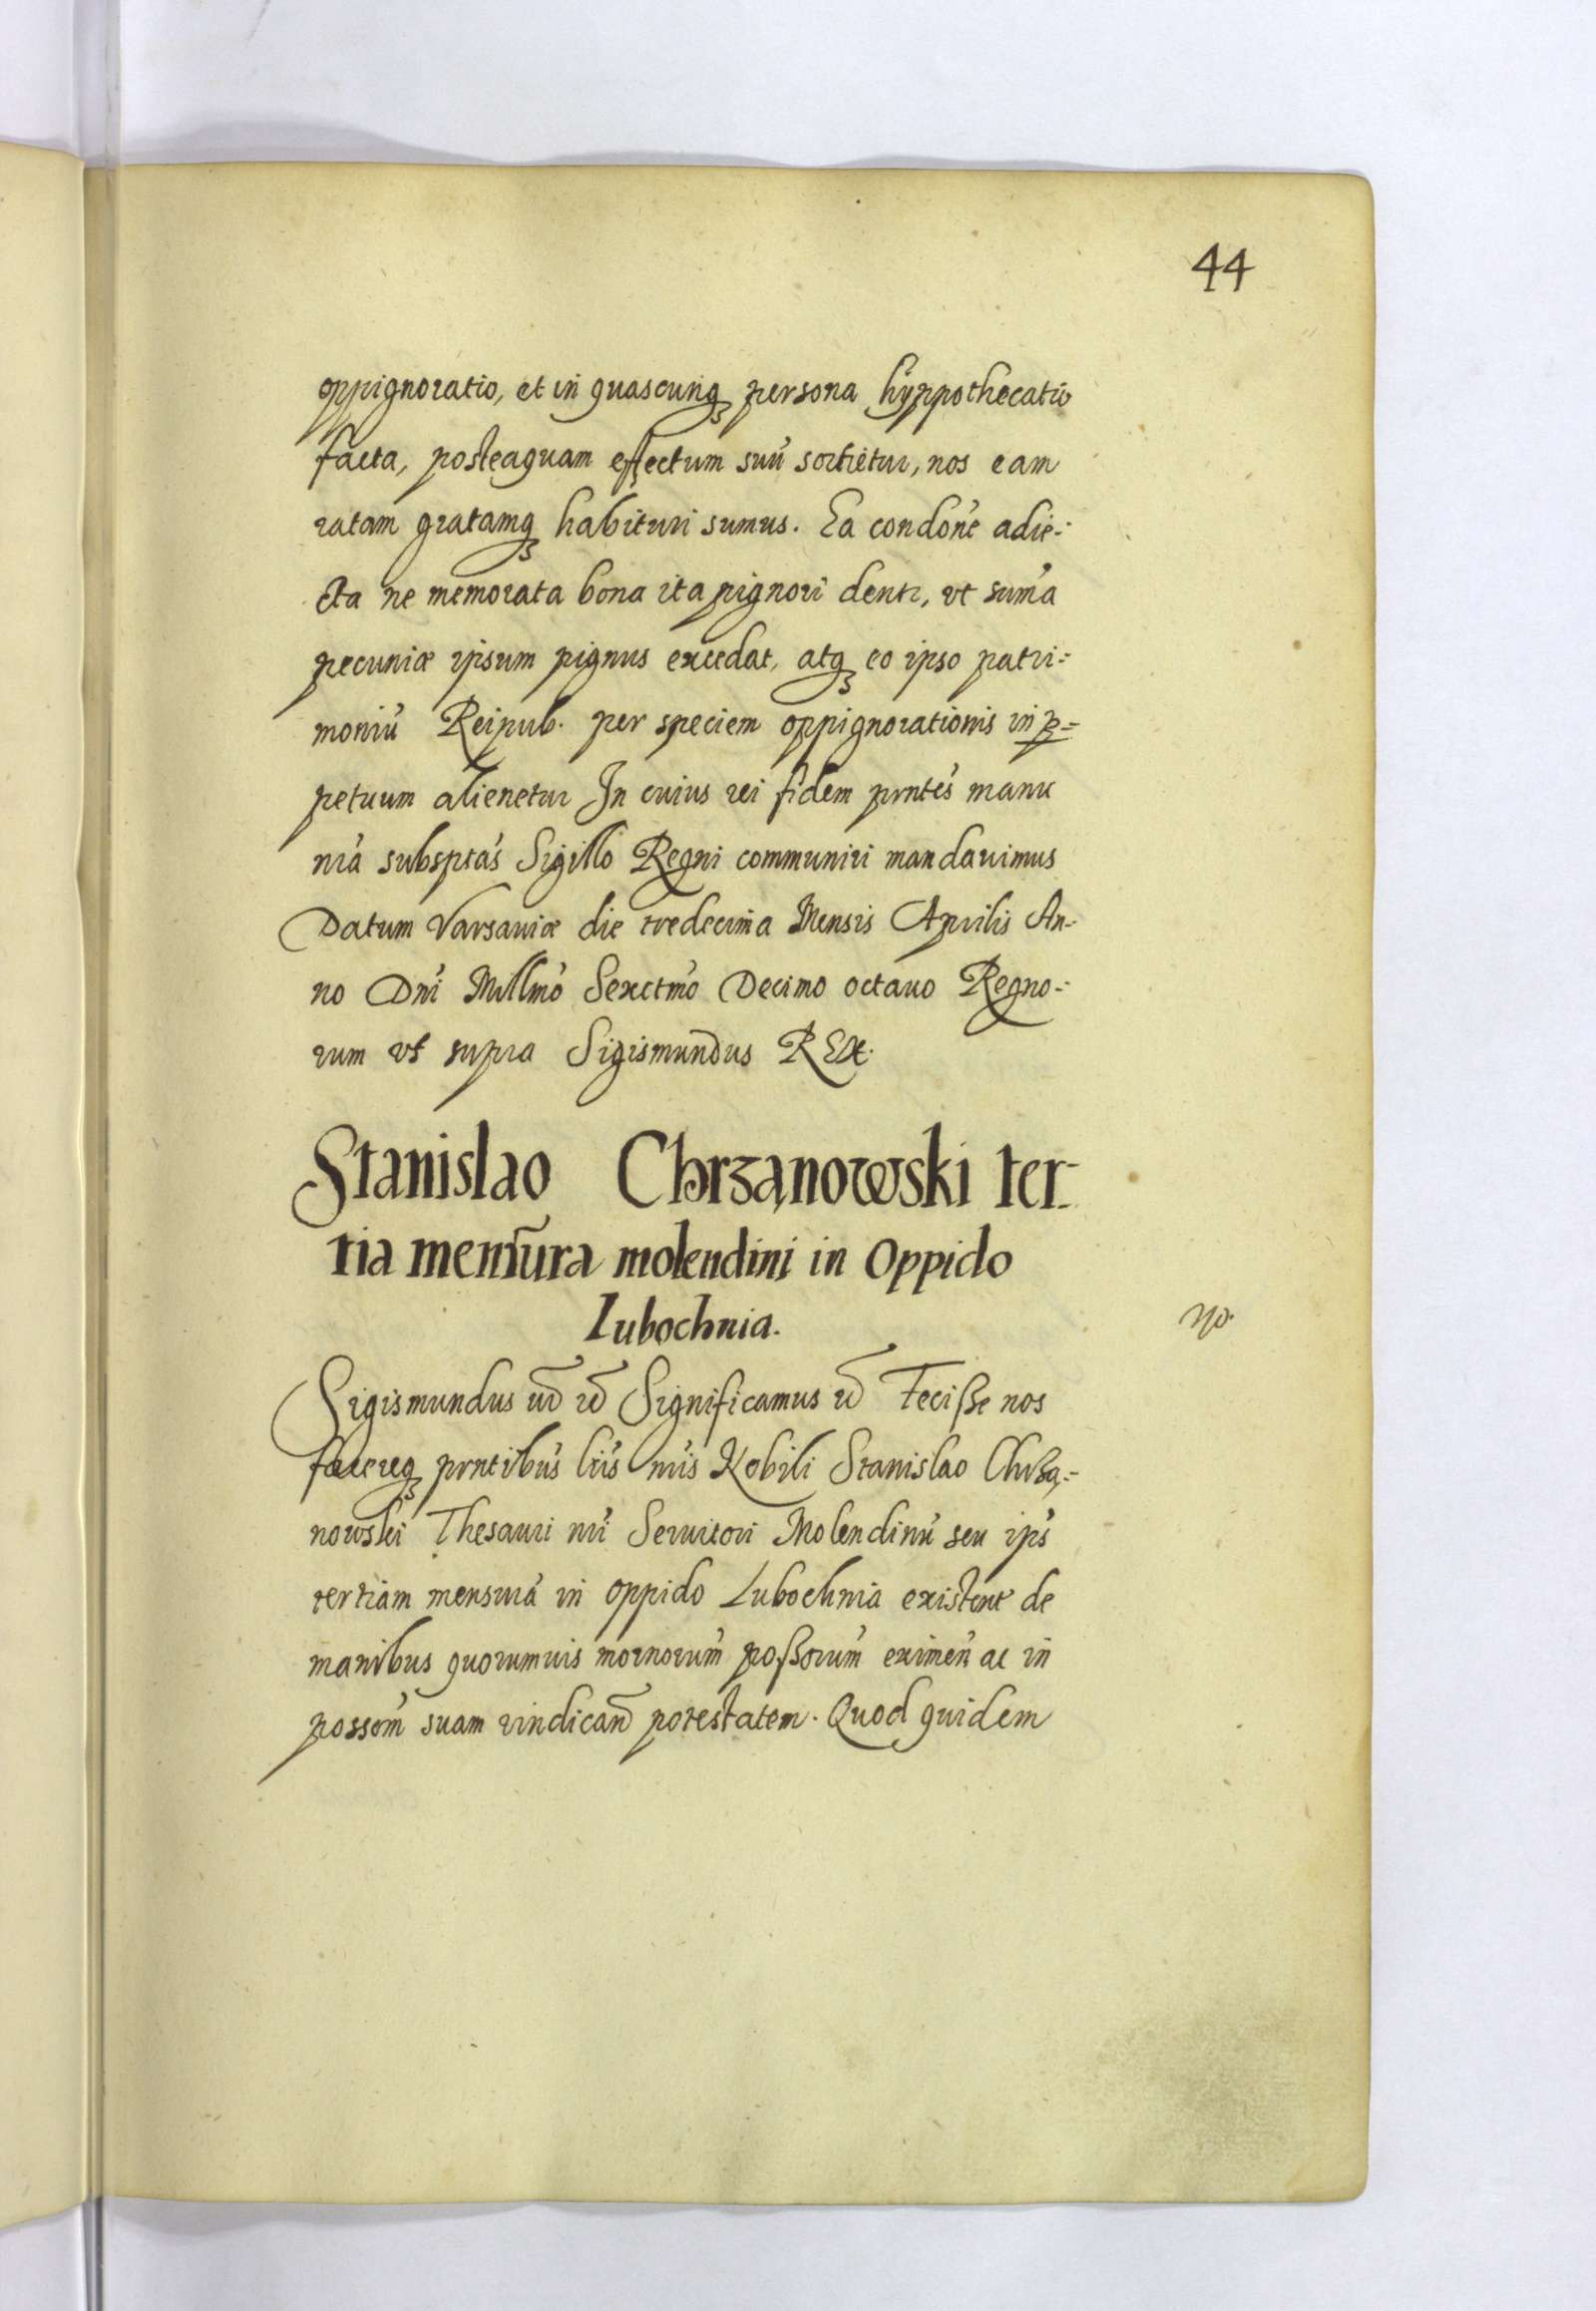 44
oppignoratio, et in quascunq persona hÿppothecatio
facta, posteaquam effectum suū sortietur, nos eam
ratam gratamq habituri sumus. Ea condone adie-
cta ne memorata bona ita pignori dentr, vt suma
pecuniæ ipsum pignus excedat, atq eo ipso patri-
moniū Reipub. per speciem oppignorationis in p-
petuum alienetur In cuius rei fidem prntes manu
nra subsptas Sigillo Regni communiri mandauimus
Datum Varsauiæ die tredecima Mensis Aprilis An-
no Dni Millmo Sexctmo Decimo octauo Regno-
rum vt supra Sigismundus REX.
Stanislao Chrząnowski ter-
tia mensura molendini in Oppido
Lubochnia.
Sigismundus Significamus Fecisse nos
facereq prntibus lris nris Nobili Stanislao Chrzą-
nowski Thesauri nri Seruitori Molendinū seu ips
tertiam mensurā in oppido Lubochnia existent de
manibus quorumuis mornorum possorum eximen ac in
possom suam vindican potestatem. Quod quidem